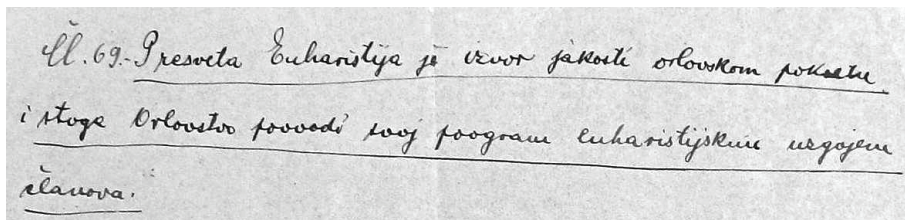 Čl. 69.- Presveta Euharistija je izvor jakosti orlovskom pokretu
i stoga Orlovstvo provodi svoj program euharistijskim uzgojem
članova.